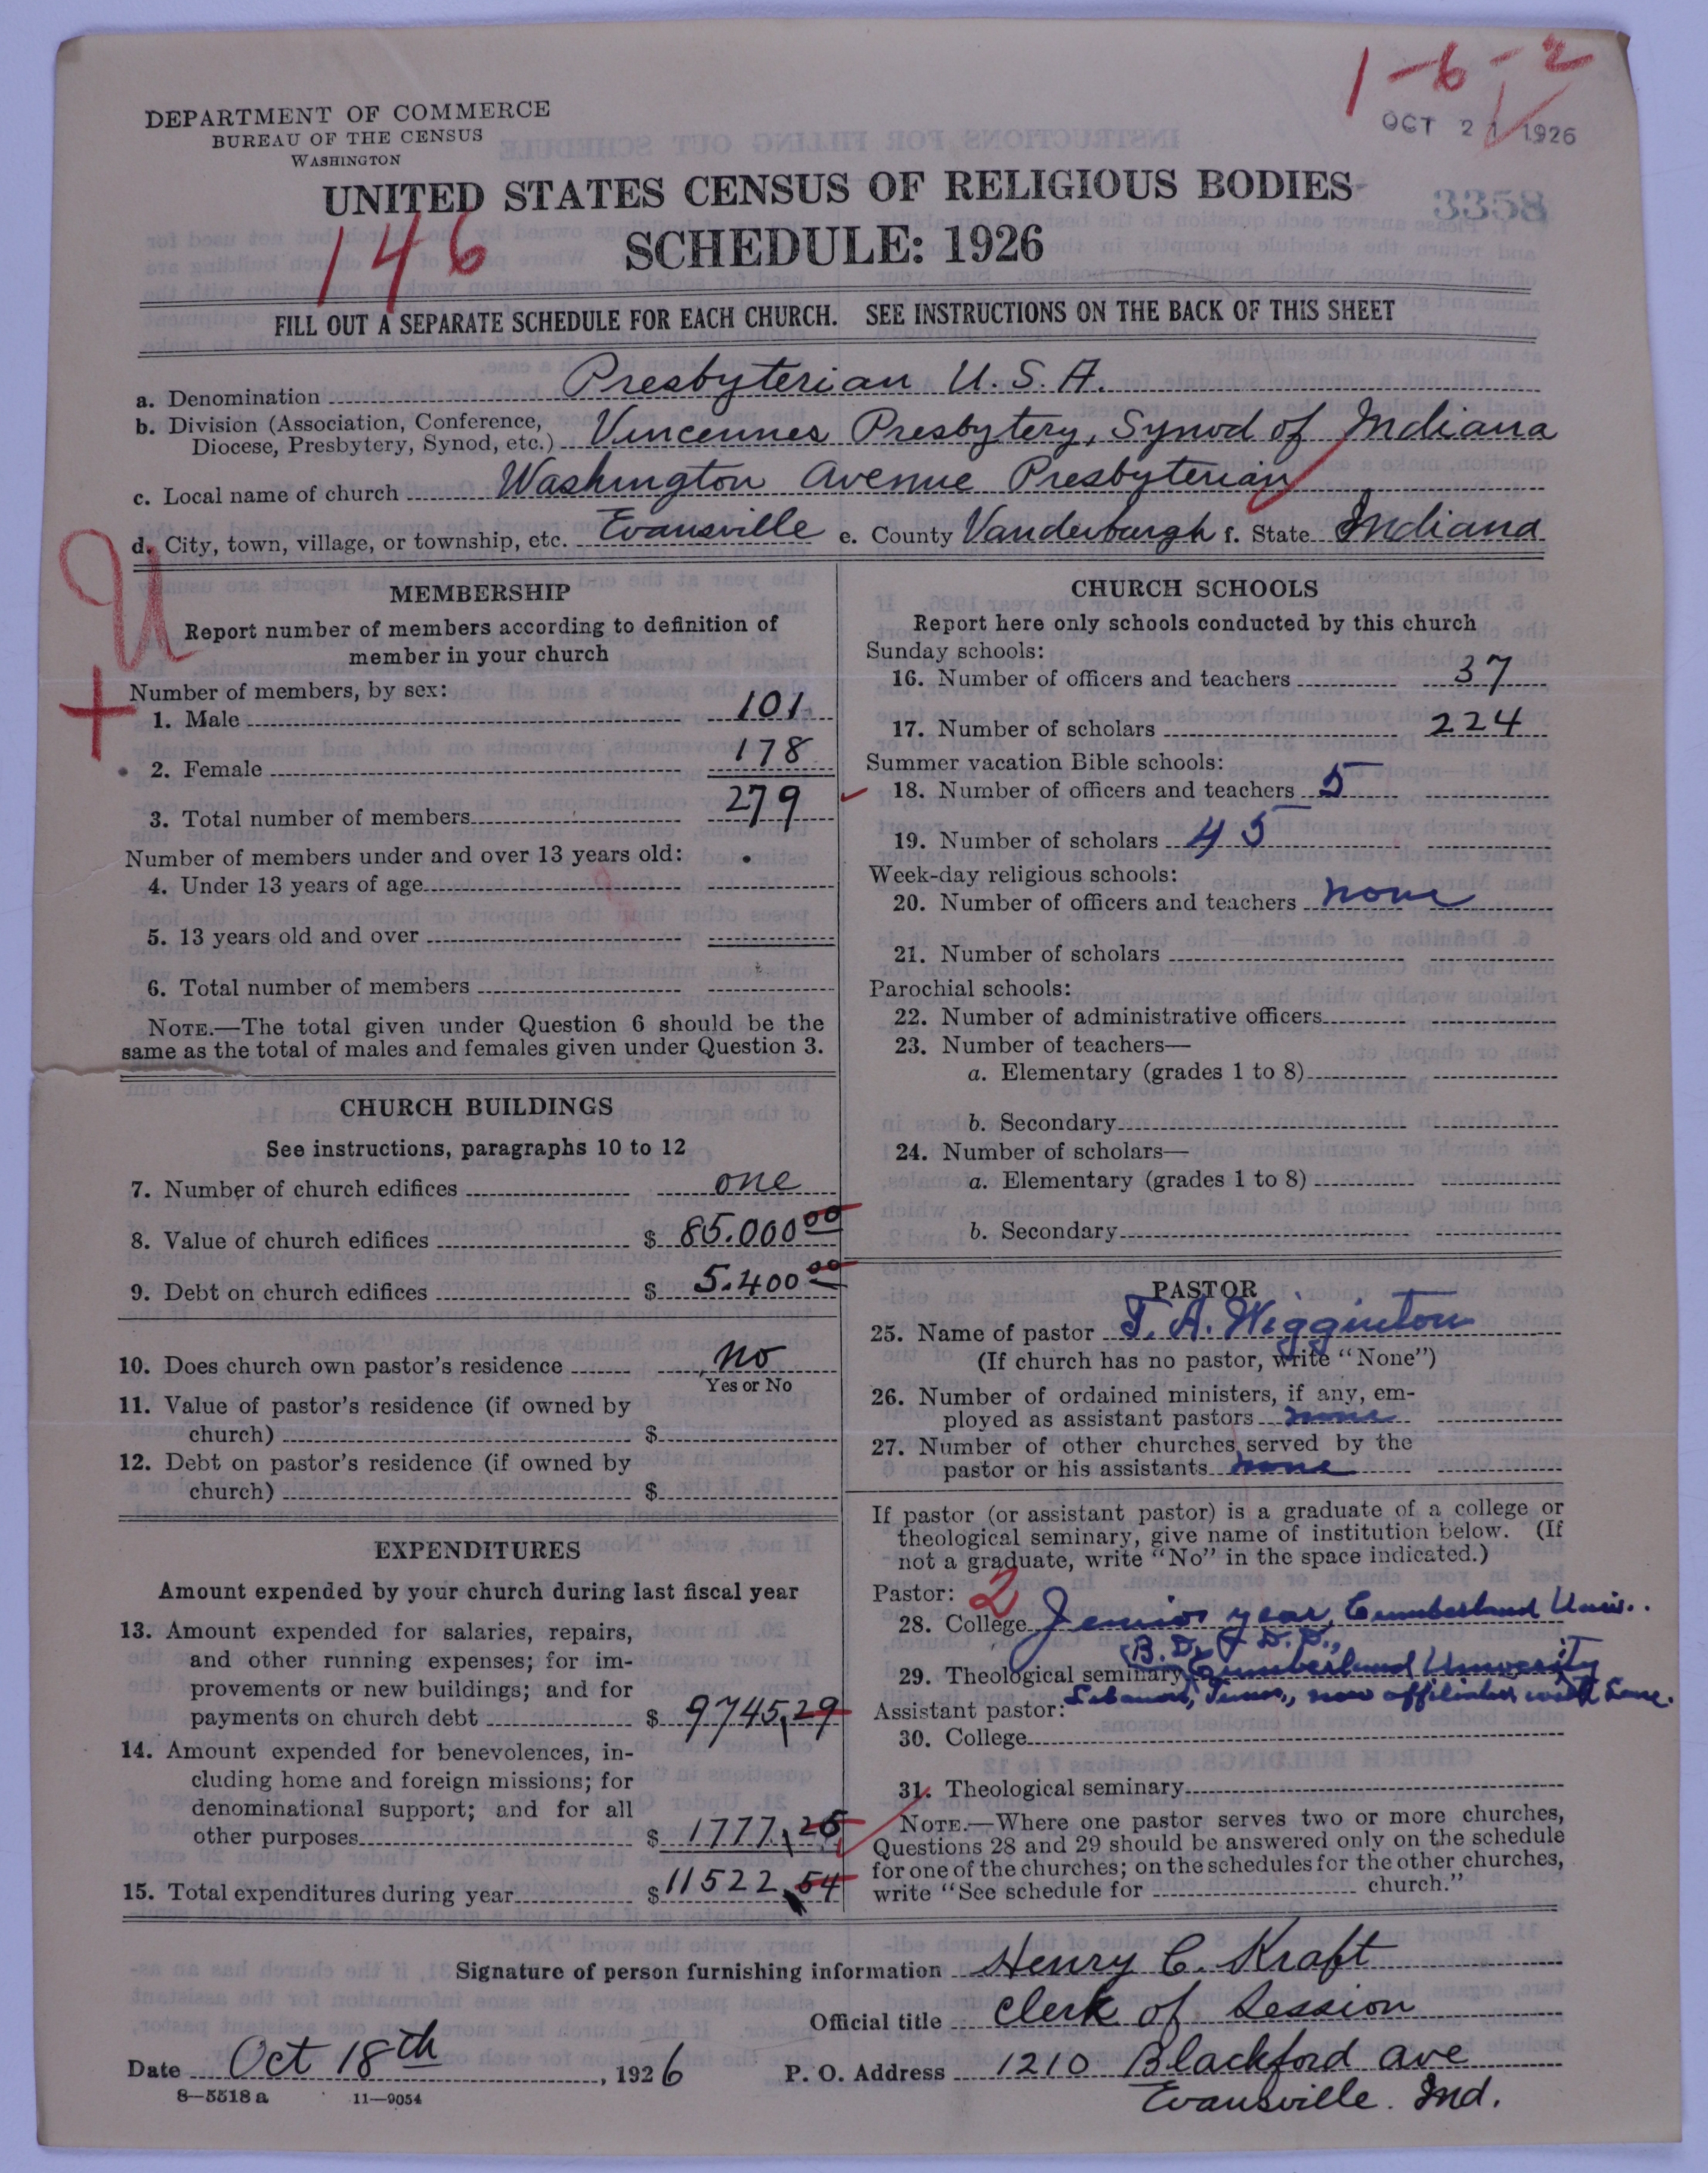 1-6-2
DEPARTMENT OF COMMERCE
BUREAU OF THE CENSUS
WASHINGTON
OCT 21 1926
UNITED STATES CENSUS OF RELIGIOUS BODIES
3358
146
SCHEDULE: 1926
FILL OUT A SEPARATE SCHEDULE FOR EACH CHURCH. SEE INSTRUCTIONS ON THE BACK OF THIS SHEET
a. Denomination Presbyterian U.S.A.
b. Division (Association, Conference,
Diocese, Presbytery, Synod, etc.) Vincennes Presbytery, Synod of Indiana
c. Local name of church Washington Avenue Presbyterian
d. City, town, village, or township, etc. Evansville e. County Vanderburgh f. State Indiana
U
+
MEMBERSHIP
Report number of members according to definition of
member in your church
Number of members, by sex:
1. Male 101
2. Female 178
3. Total number of members 279
Number of members under and over 13 years old:
4. Under 13 years of age
5. 13 years old and over
6. Total number of members
NOTE.—The total given under Question 6 should be the
same as the total of males and females given under Question 3.
CHURCH BUILDINGS
See instructions, paragraphs 10 to 12
7. Number of church edifices one
8. Value of church edifices $ 85.000 00
9. Debt on church edifices $ 5.400 00
10. Does church own pastor's residence no
Yes or No
11. Value of pastor's residence (if owned by
church) $
12. Debt on pastor's residence (if owned by
church) $
EXPENDITURES
Amount expended by your church during last fiscal year
13. Amount expended for salaries, repairs,
and other running expenses; for im-
provements or new buildings; and for
payments on church debt $ 9745,29
14. Amount expended for benevolences, in-
cluding home and foreign missions; for
denominational support; and for all
other purposes $ 1777,25
15. Total expenditures during year $ 11522,54
CHURCH SCHOOLS
Report here only schools conducted by this church
Sunday schools:
16. Number of officers and teachers 37
17. Number of scholars 224
Summer vacation Bible schools:
18. Number of officers and teachers 5
19. Number of scholars 45
Week-day religious schools:
20. Number of officers and teachers none
21. Number of scholars
Parochial schools:
22. Number of administrative officers
23. Number of teachers—
a. Elementary (grades 1 to 8)
b. Secondary
24. Number of scholars—
a. Elementary (grades 1 to 8)
b. Secondary
PASTOR
25. Name of pastor T. A. Wigginton
(If church has no pastor, write "None")
26. Number of ordained ministers, if any, em-
ployed as assistant pastors none
27. Number of other churches served by the
pastor or his assistants none
If pastor (or assistant pastor) is a graduate of a college or
theological seminary, give name of institution below. (If
not a graduate, write "No" in the space indicated.)
Pastor: 2
28. College Junior year, Cumberland Univ.
B.D. & D.D.,
29. Theological seminary Cumberland University
Lebanon, Tenn., now affiliated with Lane.
Assistant pastor:
30. College
31. Theological seminary
NOTE.—Where one pastor serves two or more churches,
Questions 28 and 29 should be answered only on the schedule
for one of the churches; on the schedules for the other churches,
write "See schedule for church."
Signature of person furnishing information Henry C. Kraft
Official title Clerk of Session
Date Oct 18th, 1926 P. O. Address 1210 Blackford ave
8—5518a 11—9054
Evansville. Ind.